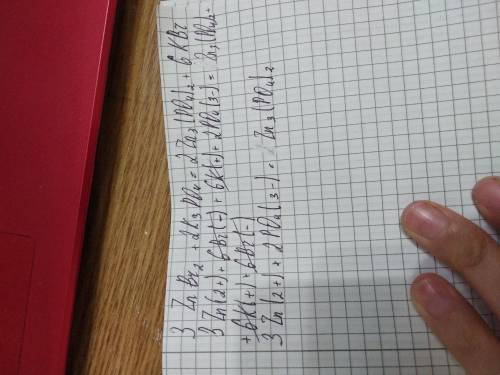 3 ZnBr2 + 2K3PO4 = 2Zn3(PO4)2 + 6KBr
3 Zn(2+) + 6Br(-) + 6K(+) + 2PO4(3-) = Zn3(PO4)2
+ 6K(+) + 6Br(-)
3 Zn(2+) + 2PO4(3-) = Zn3(PO4)2